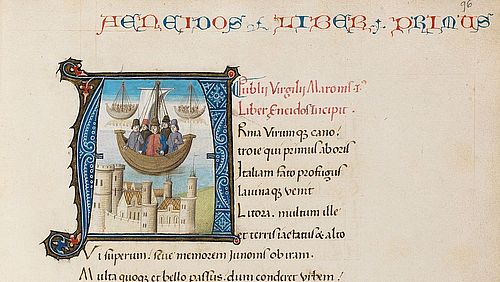 96
AENEIDOS LIBER PRIMUS
Publij Virgilij Maronis
Liber Eneidos Incipit.
Rma Virumque cano.
troie qui primus ab oris
Italiam fato profugus
lavinaque venit
Litora. multum ille
et terris iactatus & alto
Vi superum. seve memorem Junonis ob iram.
Multa quoque et bello passus. dum conderet urbem.